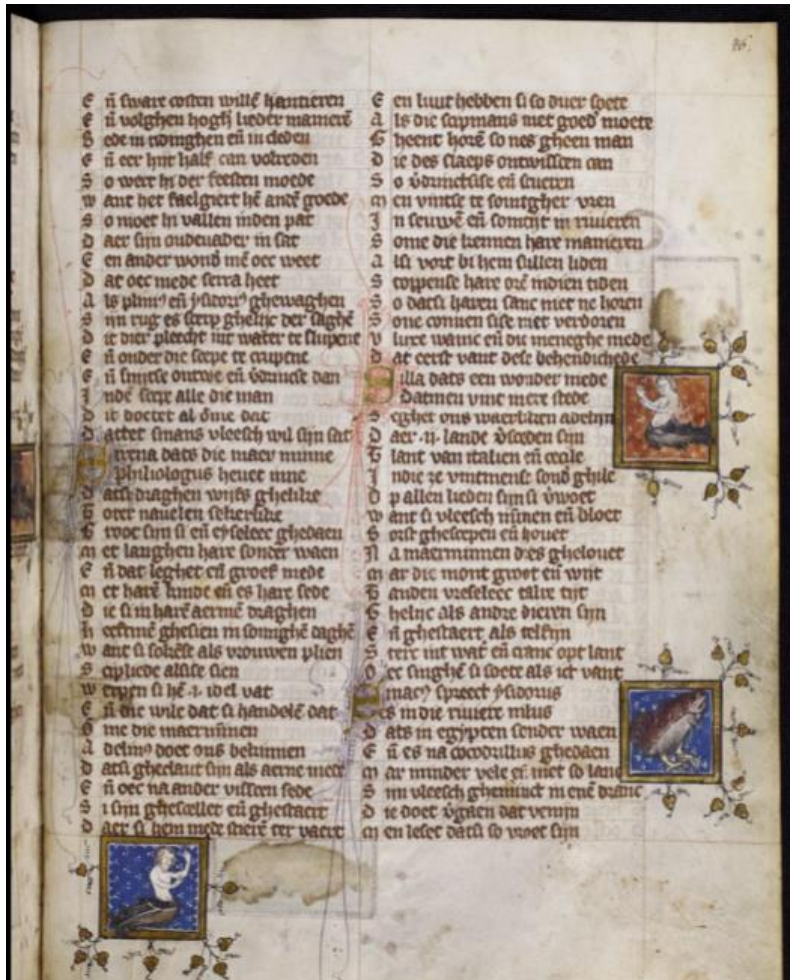 E ñ sware costen willē hantieren
E ñ volghen hoghʼ lieder manierē
B ede in ridinghen eñ in cleden
E ñ eer hijt half can volreden
S o wert hi der feesten moede
w ant het faelgiert hē andʼ goede
S o moet hi vallen inden pat
d aer sijn oudervader in sat
E en ander wondʼ mē oec weet
D at oec mede serra heet
A ls plini9 eñ ysidor9 ghewaghen
S ijn rug es scerp ghelijc der saghē
d ie dier pleecht int water te slupene
E ñ onder die scepe te crupene
E ñ snijtse ontwe eñ vʼdrincse dan
I nde scepe alle die man
D it doetet al ōme dat
D attet smans vleesch wil sijn sat
Syrena dats die maer minne
Philiologus hevet inne
D atsi draghen wijfs ghelike
T oter navelen sekerlike
G root sijn si eñ eyseleec ghedaen
m et langhen hare sonder waen
E ñ dat leghet eñ groef mede
m et harē kinde eñ es hare sede
D ie si in harē aermē draghen
h eeftmē ghesien in somighē daghē
w ant si soket als vrouwen plien
S cipliede alsise sien
w erpen si hē .i. idel vat
E ñ die wile dat si handelē dat
 me die maerminnen
A delm9 doet ons bekinnen
d atsi gheclaut sijn als aerne mede
E ñ oec na ander visscen sede
S i sijn ghescellet eñ ghestaert
D aer si hem mede stierē ter vaert
E en luut hebben si so over soete
A ls die scipmans niet goedʼ moete
G heent horē so nes gheen man
d ie des slaeps ontwissen can
S o vʼdrincksise eñ scueren
m en vintse te somigher vren
I n seuwē eñ somtijt in rivieren
S ome die kennen hare manieren
A lsi vort bi hem sullen liden
S toppense hare orē indien tiden
S o datsi haren sanc niet ne horen
S one connen sise niet verdoren
v lixe waine eñ die meneghe mede
d at eerst vant dese behendichede
Silla dats een wonder mede
Datmen vint inere stede
S eghet ons waerliken adelijn
D aer .ij. lande vʼsceden sijn
T lant van italien eñ cecile
I ndie ze vintmense sondʼ ghile
D p allen lieden sijn si vʼwoet
w ant si vleesch minnen eñ bloet
B orst ghescepen eñ hovet
N a maerminnen dies ghelovet
m ar die mont groot eñ wijt
T anden vreseleec talre tijt
G helijc als andre dieren sijn
E ñ ghestaert als telfijn
S terc int watʼ eñ cranc opt lant
O ec singhē si soete als ict vant
 spreect ysidorus
es in die riviere nilus
D ats in egypten sonder waen
E ñ es na cocodrillus ghedaen
m ar minder vele eñ niet so lanc
S ijn vleesch ghenut in enē dranc
D ie doet vʼgaen dat venijn
m en leset datsi so vroet sijn